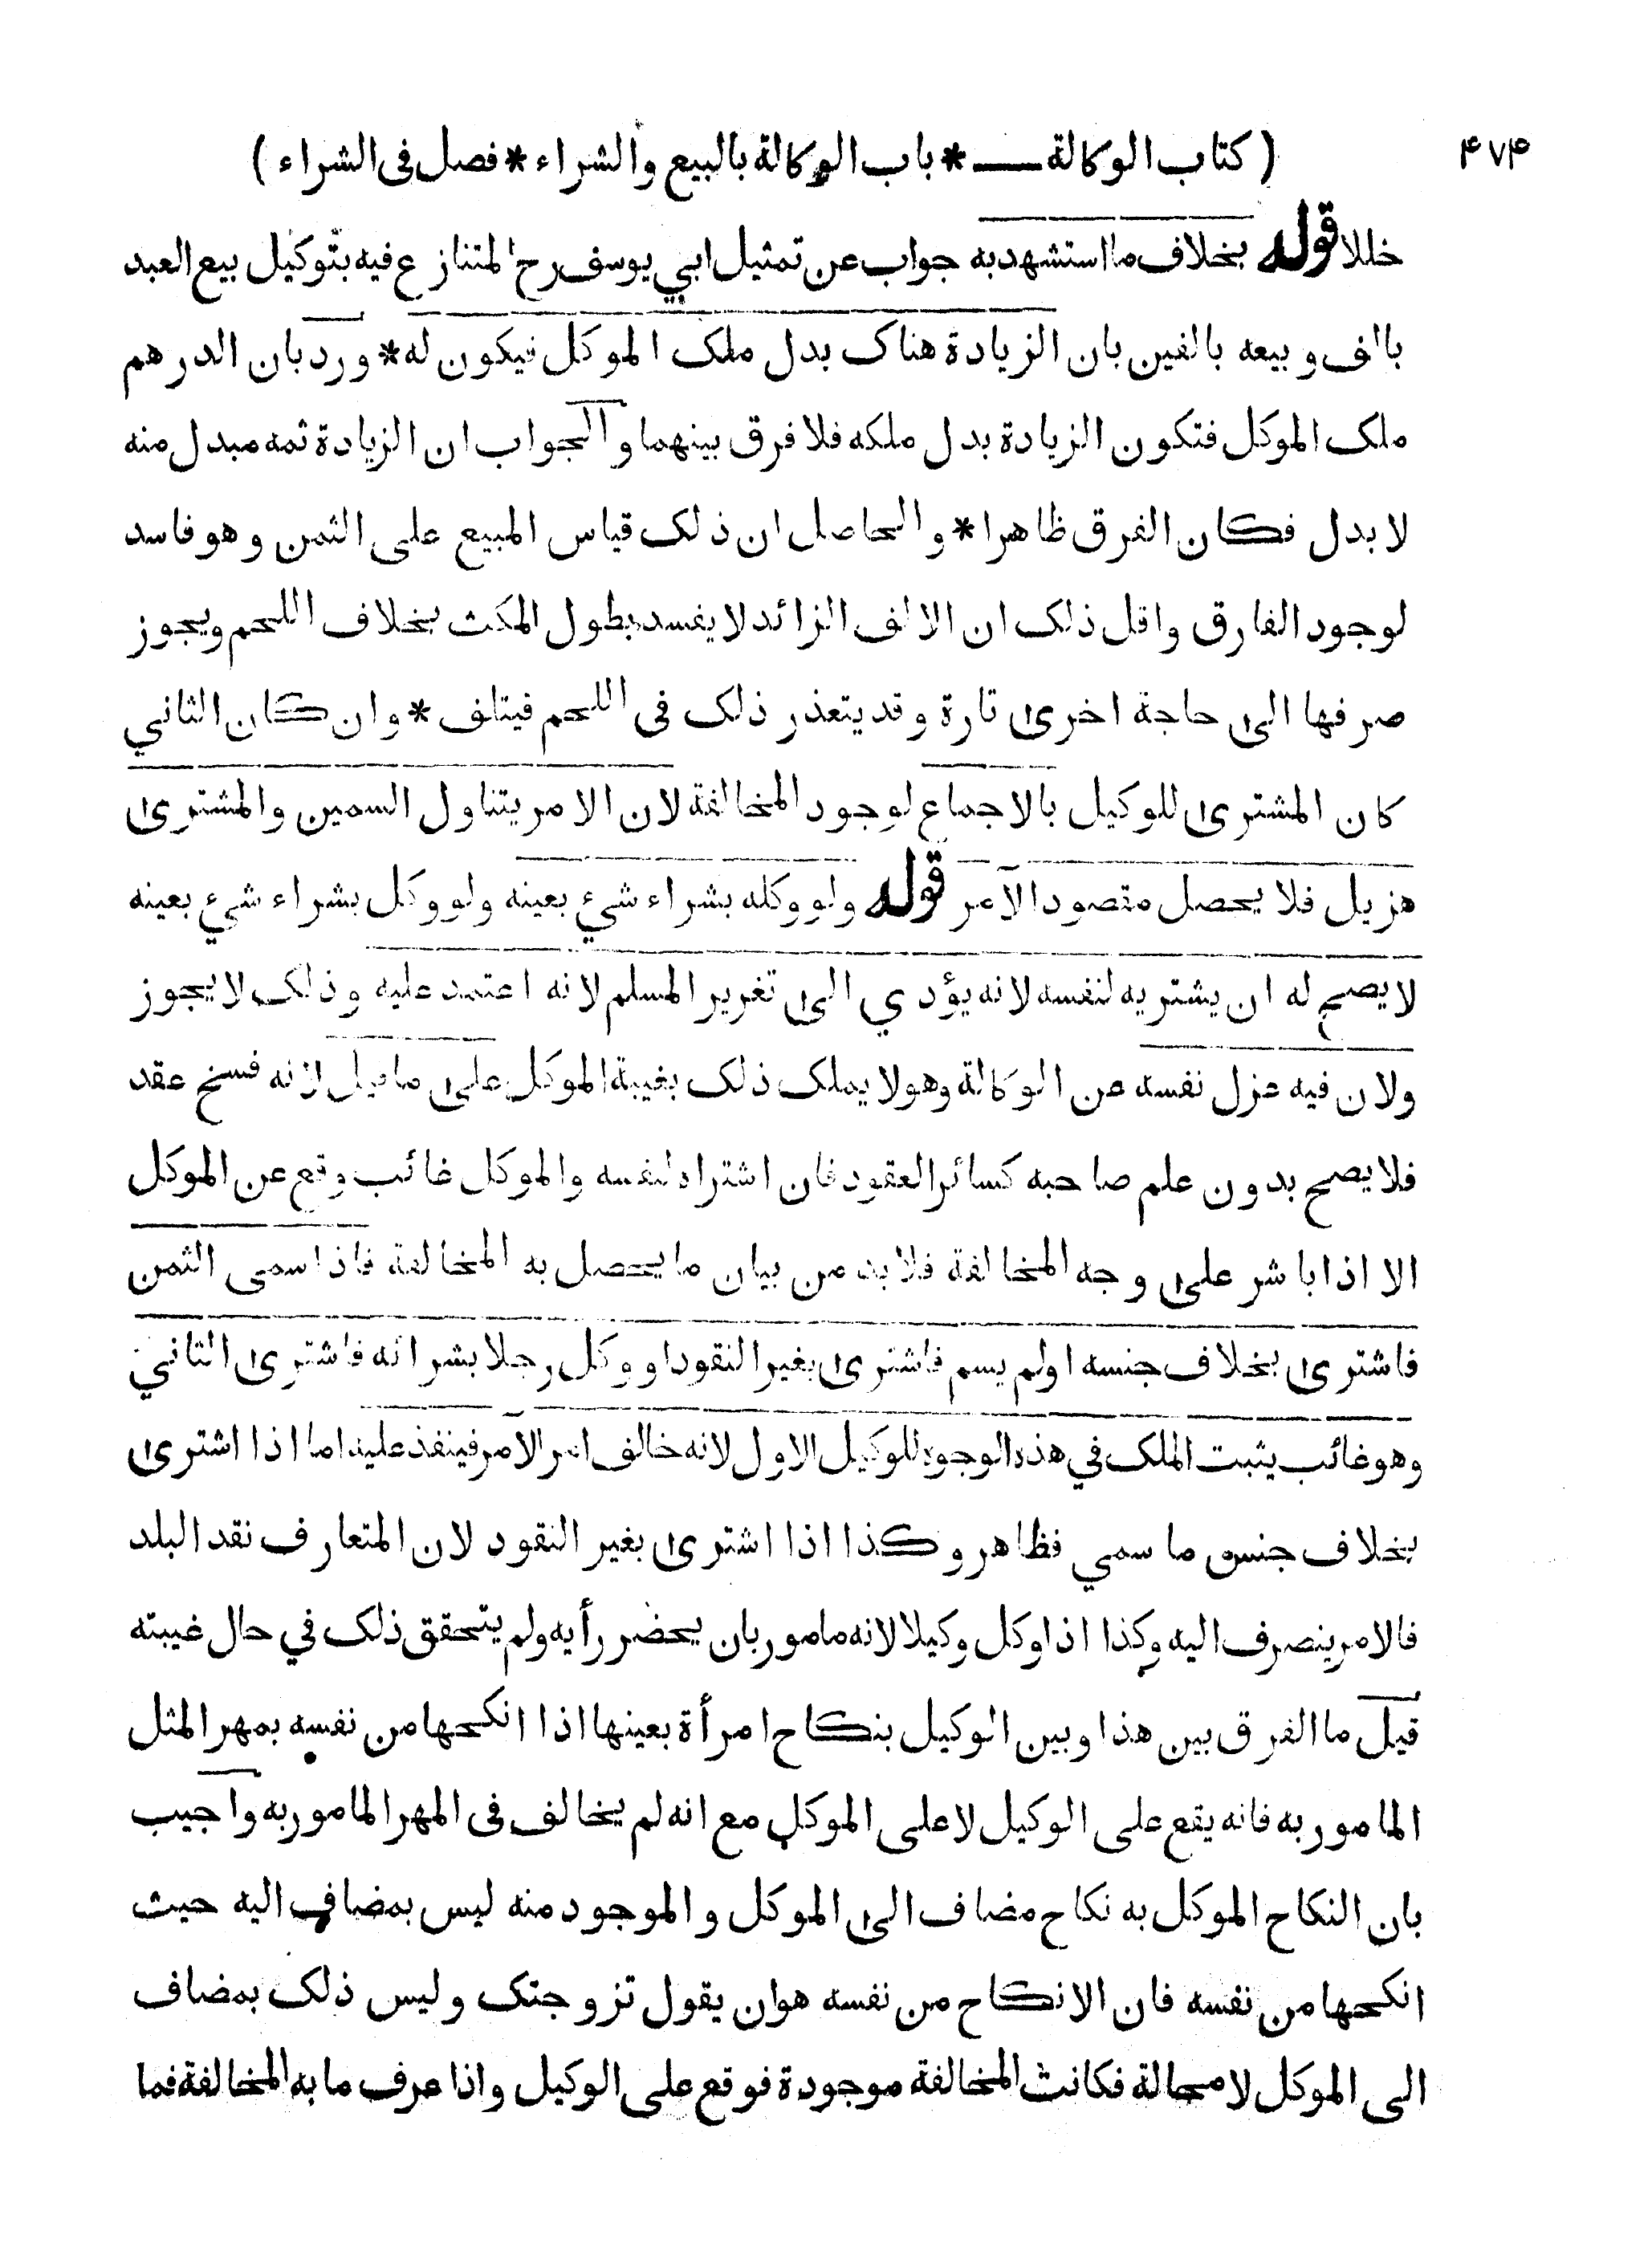 ( كتاب الوكالة — * باب الوكالة بالبيع والشراء * فصل فى الشراء ) ۴۷۴
خللا قوله بخلاف ما استشهد به جواب عن تمثيل ابي يوسف رح المتنازع فيه بتوكيل بيع العبد
بالف و بيعه بالفين بان الزيادة هناك بدل ملك الموكل فيكون له * ورد بان الدرهم
ملك الموكل فتكون الزيادة بدل ملكه فلا فرق بينهما والجواب ان الزيادة ثمه مبدل منه
لا بدل فكان الفرق ظاهرا * والحاصل ان ذلك قياس المبيع على الثمن وهو فاسد
لوجود الفارق واقل ذلك ان الالف الزائد لا يفسد بطول المكث بخلاف اللحم ويجوز
صرفها الى حاجة اخرى تارة وقد يتعذر ذلك فى اللحم فيتلف * وان كان الثاني
كان المشترى للوكيل بالاجماع لوجود المخالفة لان الامر يتناول السمين والمشترى
هزيل فلا يحصل مقصود الآمر قوله ولو وكله بشراء شيء بعينه ولو وكل بشراء شيء بعينه
لا يصح له ان يشتريه لنفسه لانه يؤدي الى تغرير المسلم لانه اعتمد عليه وذلك لا يجوز
ولان فيه عزل نفسه عن الوكالة وهو لا يملك ذلك بغيبة الموكل على ما قيل لانه فسخ عقد
فلا يصح بدون علم صاحبه كسائر العقود فان اشتراه لنفسه والموكل غائب وقع عن الموكل
الا اذا باشر على وجه المخالفة فلا بد من بيان ما يحصل به المخالفة فاذا سمى الثمن
فاشترى بخلاف جنسه اولم يسم فاشترى بغير النقود او وكل رجلا بشرائه فاشترى الثاني
وهو غائب يثبت الملك في هذه الوجوه للوكيل الاول لانه خالف امر الآمر فينفذ عليه اما اذا اشترى
بخلاف جنس ما سمي فظاهر وكذا اذا اشترى بغير النقود لان المتعارف نقد البلد
فالامر ينصرف اليه وكذا اذا وكل وكيلا لانه مامور بان يحضر رأيه ولم يتحقق ذلك في حال غيبته
قيل ما الفرق بين هذا وبين الوكيل بنكاح امرأة بعينها اذا انكحها من نفسه بمهر المثل
المامور به فانه يقع على الوكيل لا على الموكل مع انه لم يخالف فى المهر المامور به واجيب
بان النكاح الموكل به نكاح مضاف الى الموكل والموجود منه ليس بمضاف اليه حيث
انكحها من نفسه فان الانكاح من نفسه هو ان يقول تزوجتك وليس ذلك بمضاف
الى الموكل لا محالة فكانت المخالفة موجودة فوقع على الوكيل واذا عرف ما به المخالفة فما